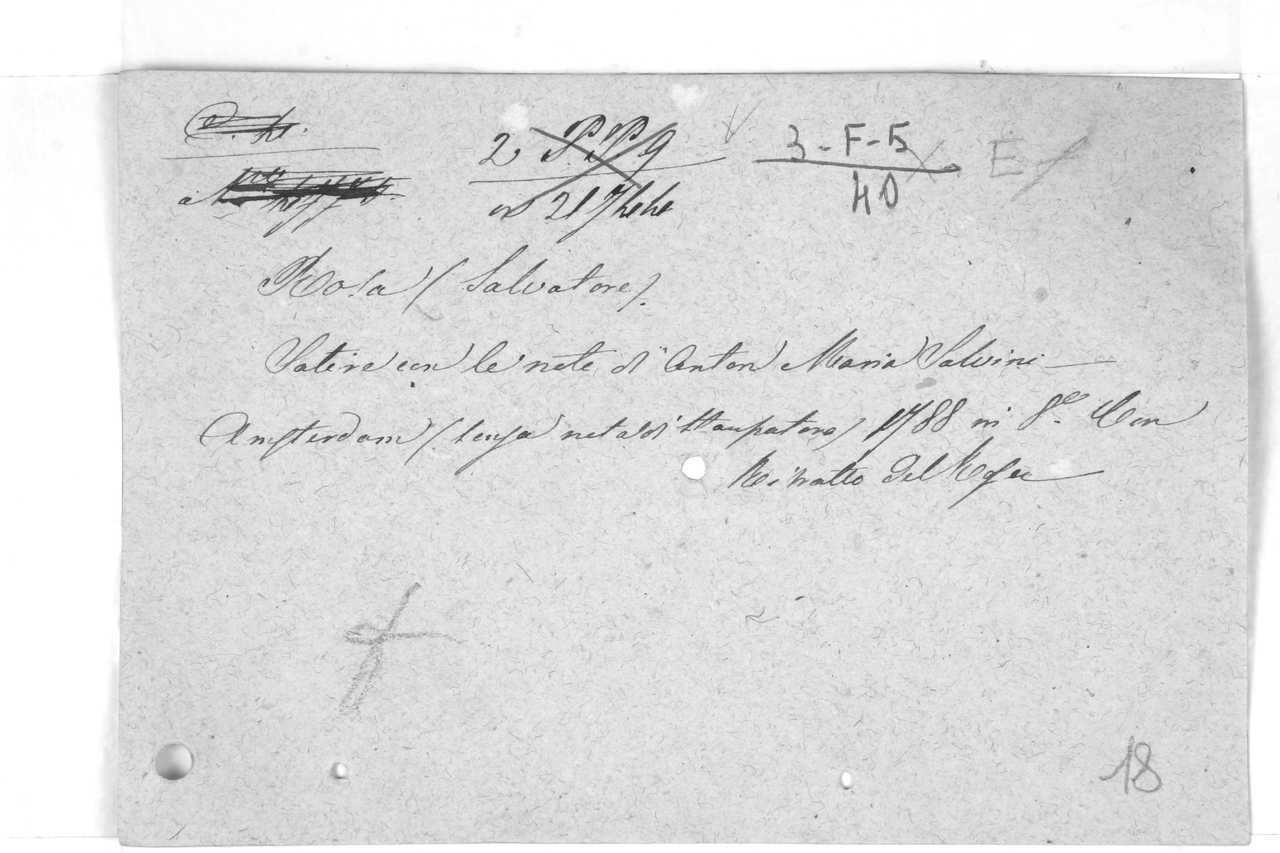 2
3-F-5 E
40
Rosa (Salvatore).
Satire con le note di Anton Maria Salvini —
Amsterdam (senza nota di Stampatore) 1788 in 8º. Con
Ritratto del Rosa
18